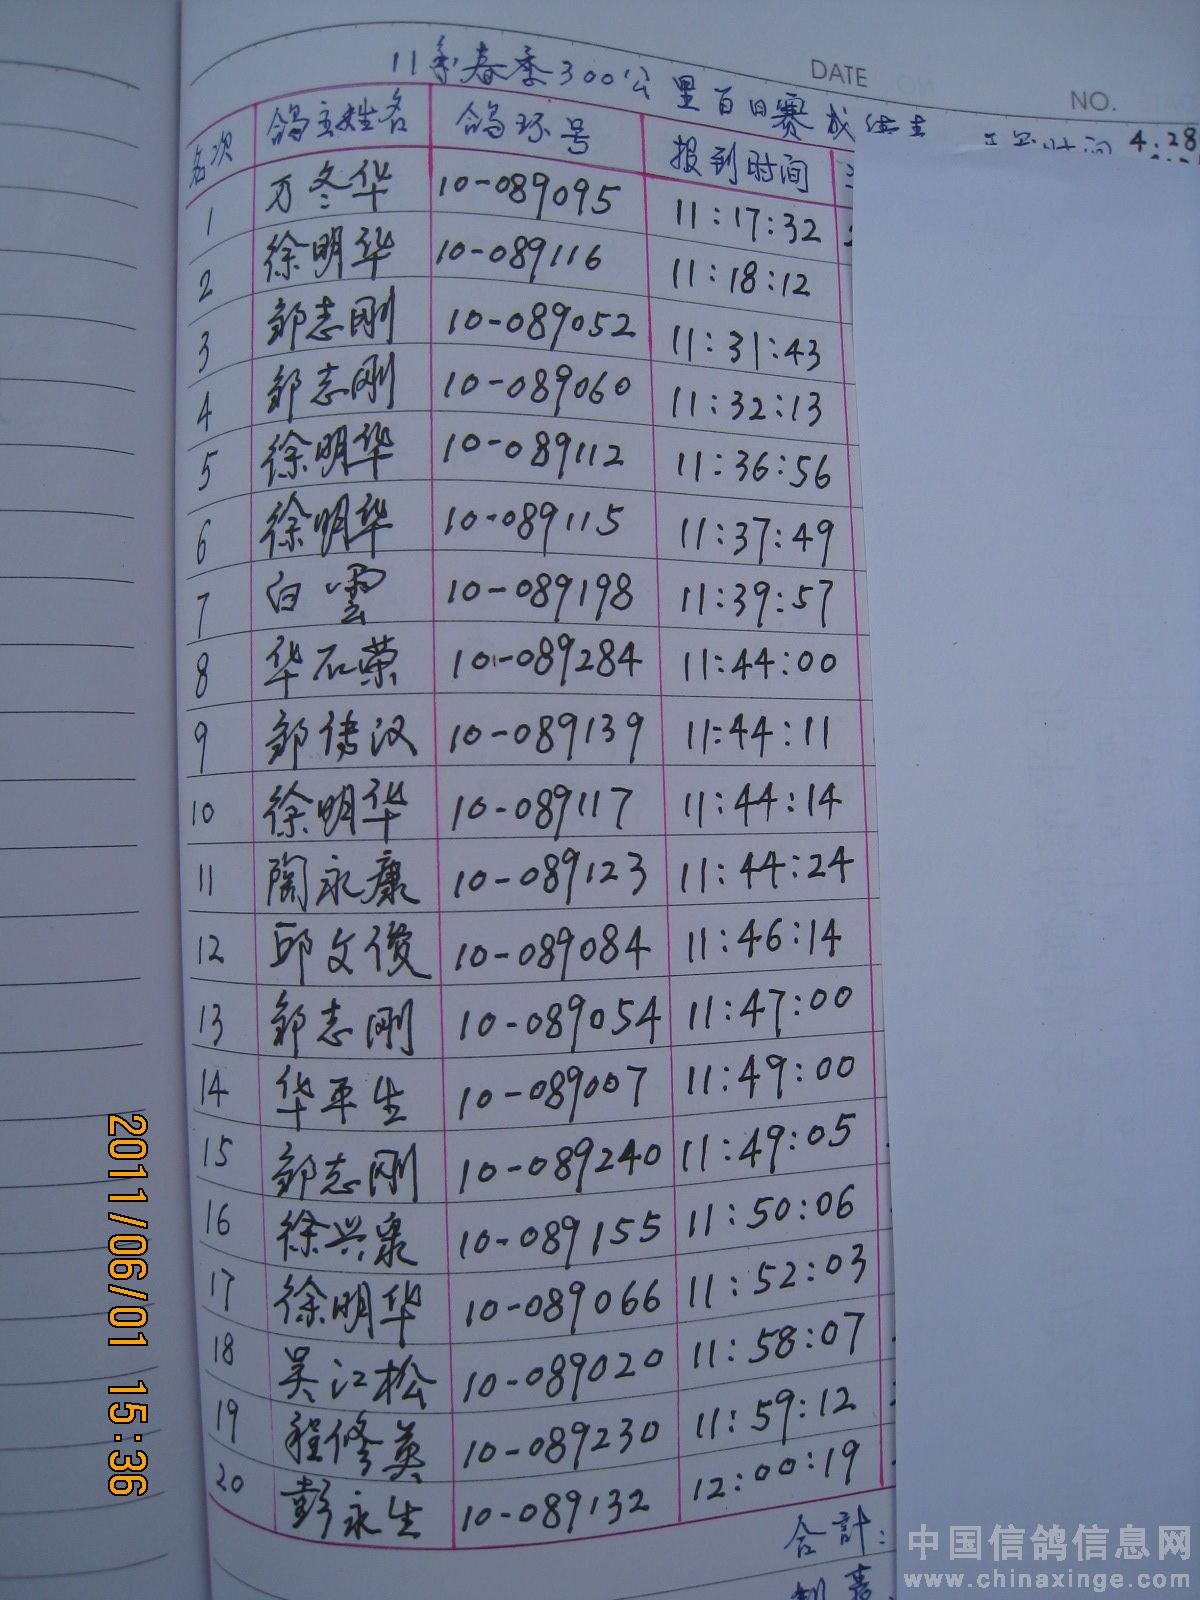 DATE
NO.
11年春季300公里百日赛成绩
4.28
名次 鸽主姓名 鸽环号 报到时间
1 万冬华 10-089095 11:17:32
2 徐明华 10-089116 11:18:12
3 邹志刚 10-089052 11:31:43
4 邹志刚 10-089060 11:32:13
5 徐明华 10-089112 11:36:56
6 徐明华 10-089115 11:37:49
7 白雲 10-089198 11:39:57
8 华石荣 10-089284 11:44:00
9 邹传汉 10-089139 11:44:11
10 徐明华 10-089117 11:44:14
11 陶永康 10-089123 11:44:24
12 邱文俊 10-089084 11:46:14
13 邹志刚 10-089054 11:47:00
14 华平生 10-089007 11:49:00
15 邹志刚 10-089240 11:49:05
16 徐兴泉 10-089155 11:50:06
17 徐明华 10-089066 11:52:03
18 吴江松 10-089020 11:58:07
19 程修英 10-089230 11:59:12
20 彭永生 10-089132 12:00:19
合計:
2011/06/01 15:36
中国信鸽信息网
www.chinaxinge.com